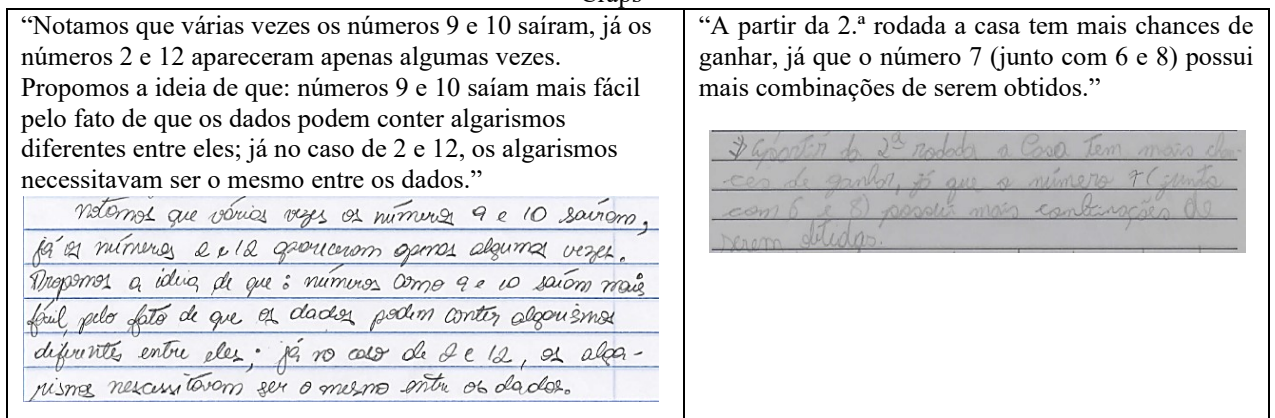 Craps
“Notamos que várias vezes os números 9 e 10 saíram, já os
números 2 e 12 apareceram apenas algumas vezes.
Propomos a ideia de que: números 9 e 10 saíam mais fácil
pelo fato de que os dados podem conter algarismos
diferentes entre eles; já no caso de 2 e 12, os algarismos
necessitavam ser o mesmo entre os dados.”
notamos que várias vezes os números 9 e 10 saíram,
já os números 2 e 12 apareceram apenas algumas vezes.
Propomos a ideia de que: números como 9 e 10 saíam mais
fácil pelo fato de que os dados podem conter algarismos
diferentes entre eles; já no caso de 2 e 12, os alga-
rismos nescessitavam ser o mesmo entre os dados.
“A partir da 2.ª rodada a casa tem mais chances de
ganhar, já que o número 7 (junto com 6 e 8) possui
mais combinações de serem obtidos.”
Apartir da 2ª rodada a Casa tem mais chan-
ces de ganhar, já que o número 7 (junto
com 6 e 8) possui mais combinações de
serem obtidos.